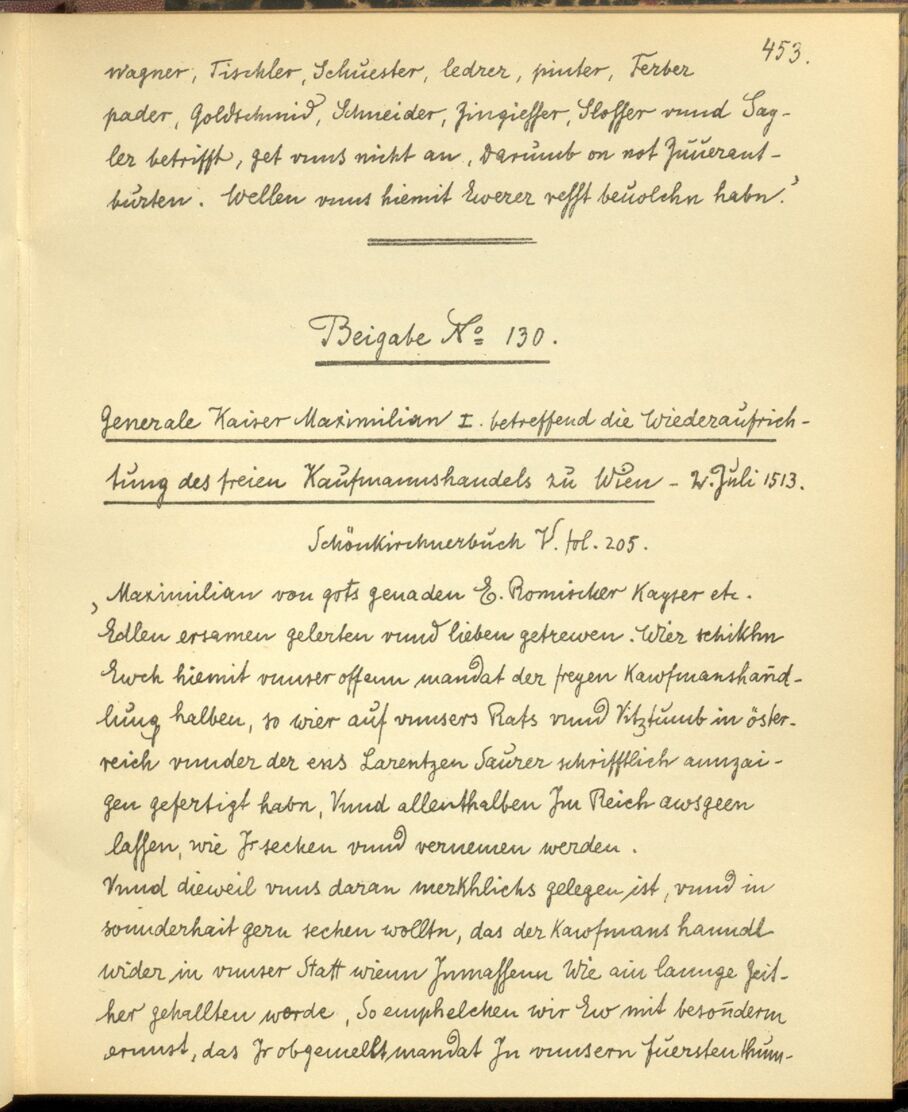 453.
wagner, Tischler, Schuester, ledrer, pinter, Ferber
pader, Goldschmid, Schneider, Zingiesser, Slosser vnnd Say-
ler betrifft, get vnns nicht an, darumb on not Zuuerant-
burten. Wellen vnns hiemit Ewerer vesst beuolchn habn.'
Beigabe No 130.
Generale Kaiser Maximilian I. betreffend die Wiederaufrich-
tung des freien Kaufmannshandels zu Wien - 2. Juli 1513.
Schönkirchnerbuch V. fol. 205.
, Maximilian von gots genaden E. Romischer Kayser etc.
Edlen ersamen gelerten vnnd lieben getrewen. Wier schikhn
Ewch hiemit vnnser offenn mandat der freyen Kawfmanshañd-
lung halben, so wier auf vnnsers Rats vnnd Vitztumb in öster-
reich vnnder der enns Larentzen Saurer schrifftlich annzai-
gen gefertigt habn, Vnnd allenthalben Im Reich awsgeen
lassen, wie Ir sechen vnnd vernemen werden.
Vnnd dieweil vnns daran merkhlichs gelegen ist, vnnd in
sonnderhait gern sechen wolltn, das der Kawfmans hanndl
wider in vnnser Statt wienn Inmassenn Wie ain lannge Zeit-
her gehallten worde, So emphelchen wir Ew mit besoñderm
ernnst, das Ir obgemellt mandat In vnnsern fuerstenthum-